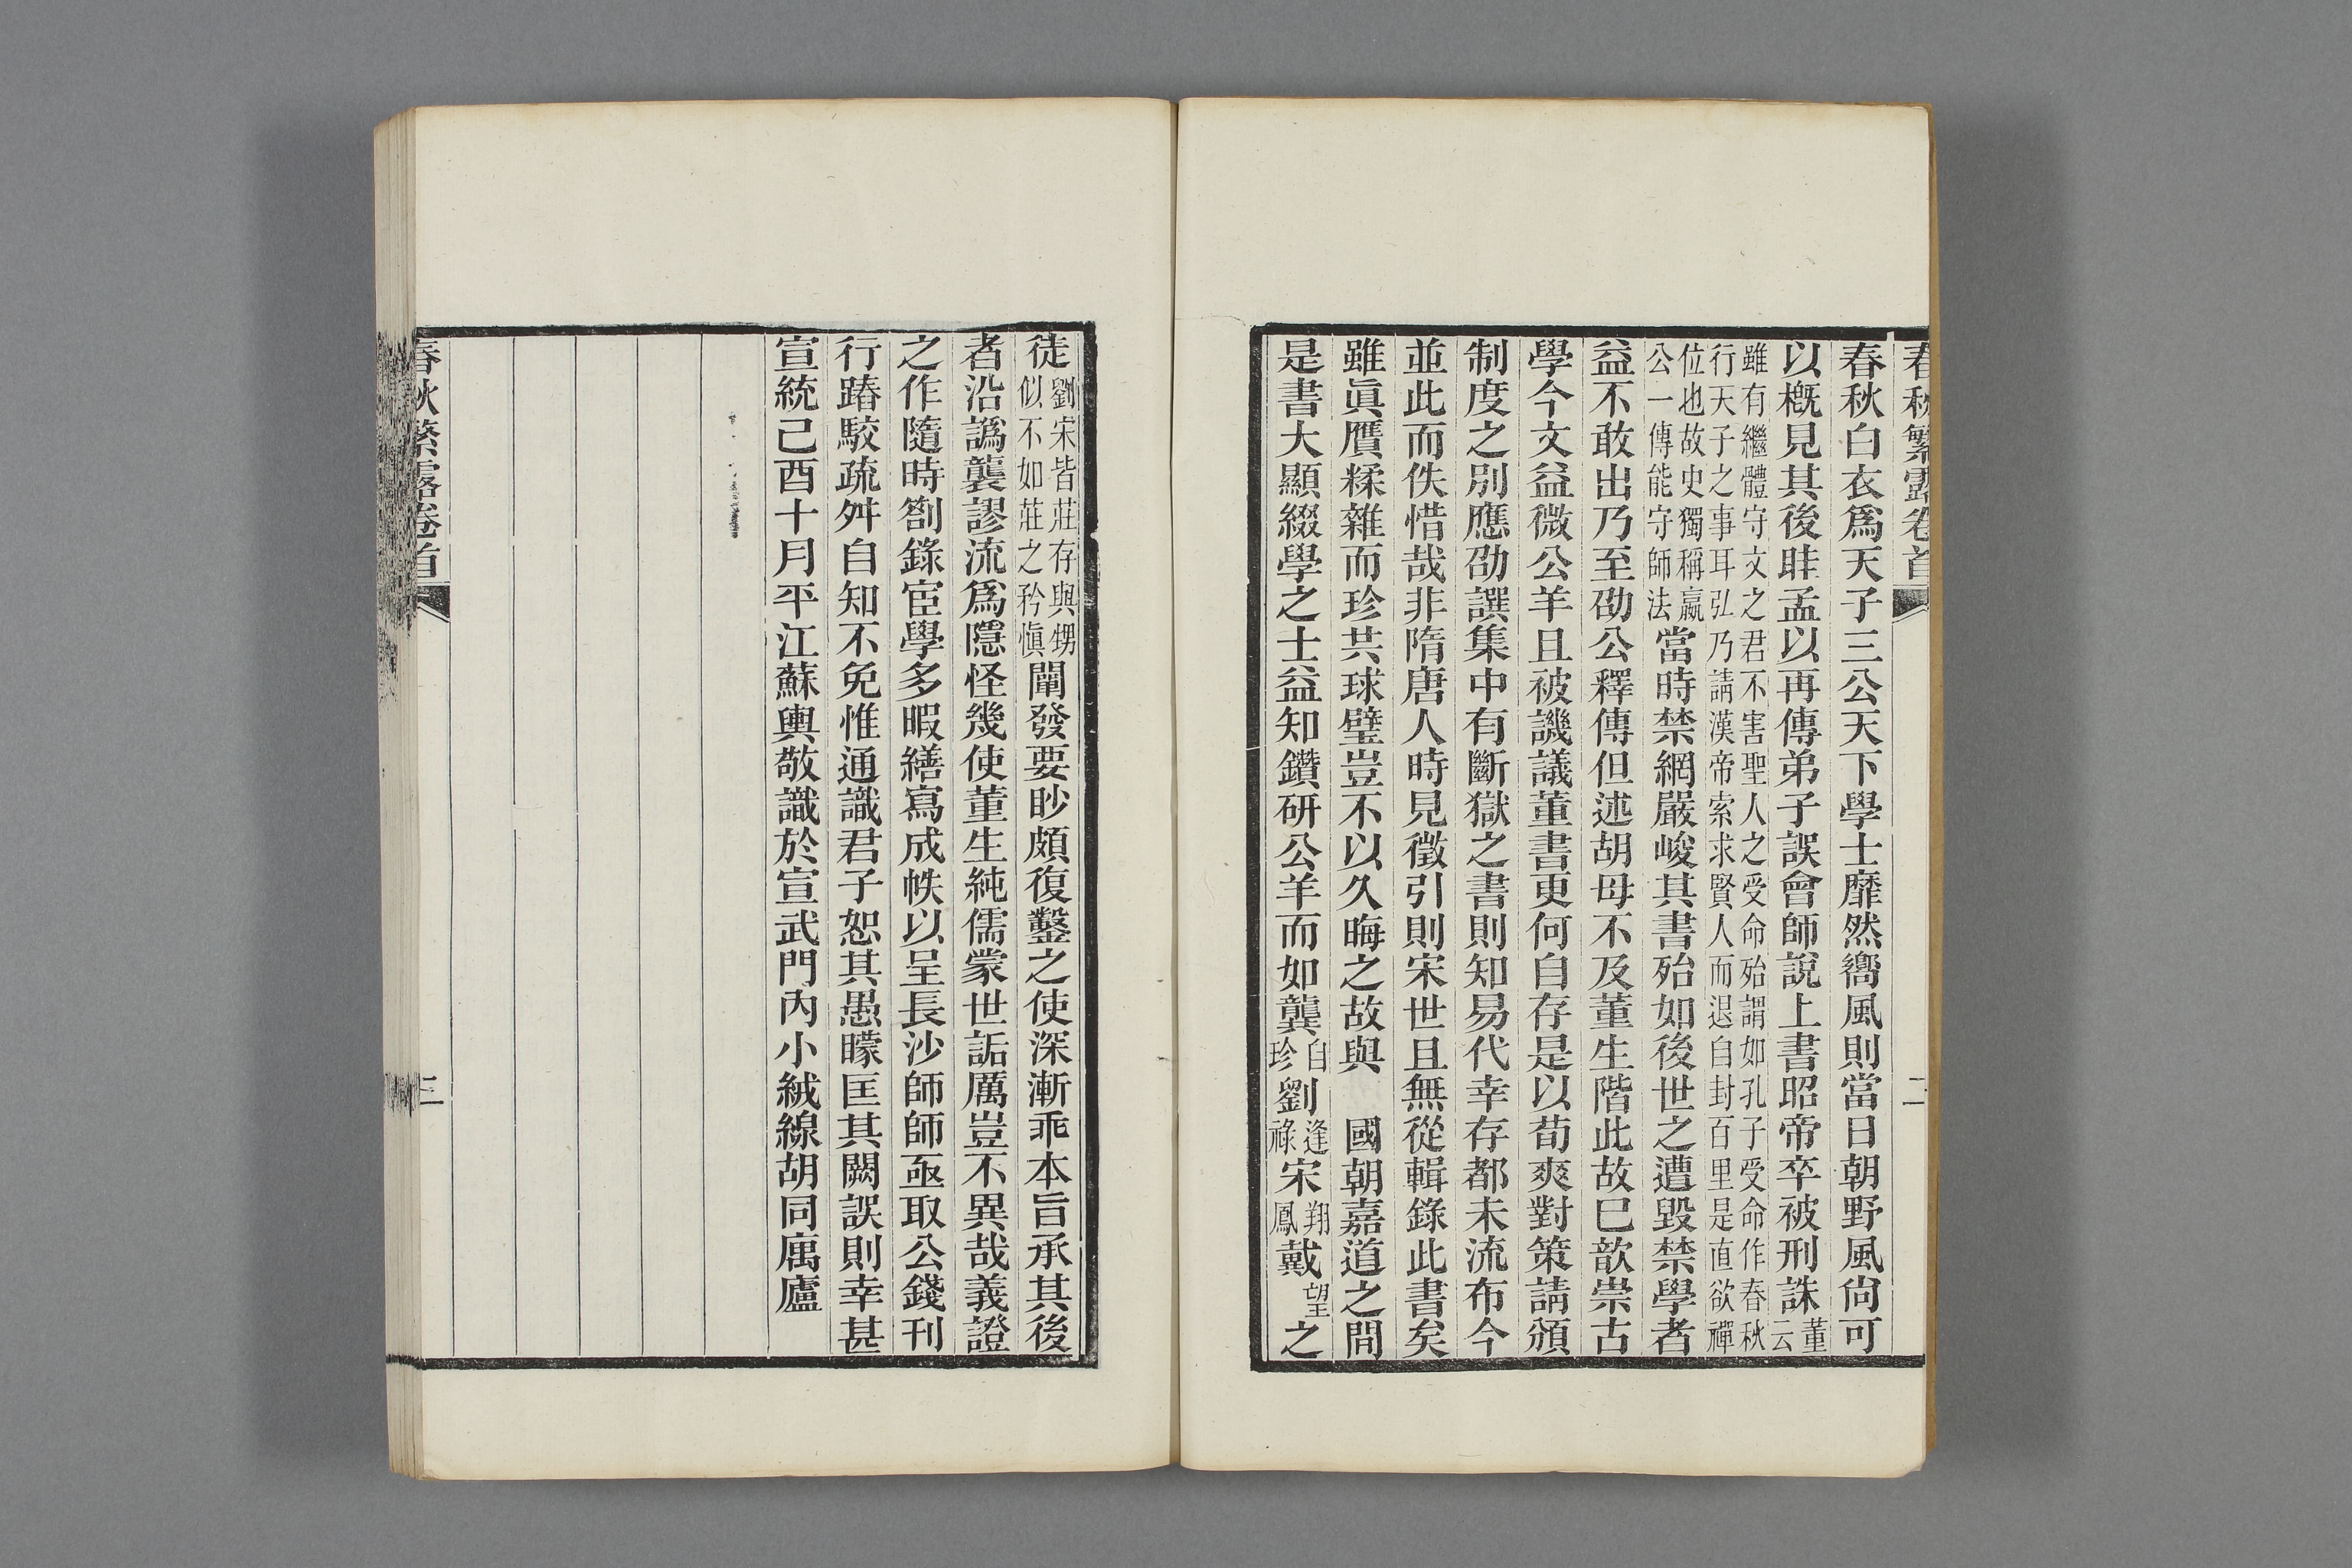 春秋繁露卷首
二
春秋白衣爲天子三公天下學士靡然嚮風則當日朝野風尙可
以概見其後眭孟以再傳弟子誤會師說上書昭帝卒被刑誅董云
雖有繼體守文之君不害聖人之受命殆謂如孔子受命作春秋
行天子之事耳弘乃請漢帝索求賢人而退自封百里是直欲禪
位也故史獨稱嬴
公一傳能守師法
當時禁網嚴峻其書殆如後世之遭毀禁學者
益不敢出乃至劭公釋傳但述胡母不及董生階此故巳歆崇古
學今文益微公羊且被譏議董書更何自存是以荀爽對策請頒
制度之別應劭譔集中有斷獄之書則知易代幸存都未流布今
並此而佚惜哉非隋唐人時見徵引則宋世且無從輯錄此書矣
雖眞贋糅雜而珍共球璧豈不以久晦之故與 國朝嘉道之間
是書大顯綴學之士益知鑽硏公羊而如龔自珍劉逢祿宋翔鳳戴望之
徒
劉宋皆莊存與甥
似不如莊之矜愼
闡發要眇頗復鑿之使深漸乖本旨承其後
者沿譌襲謬流爲隱怪幾使董生純儒蒙世詬厲豈不異哉義證
之作隨時劄錄宦學多暇繕寫成帙以呈長沙師師亟取公錢刊
行踳駮疏舛自知不免惟通識君子恕其愚矇匡其闕誤則幸甚
宣統己酉十月平江蘇輿敬識於宣武門內小絨線胡同㢏廬
春秋繁露卷首
三